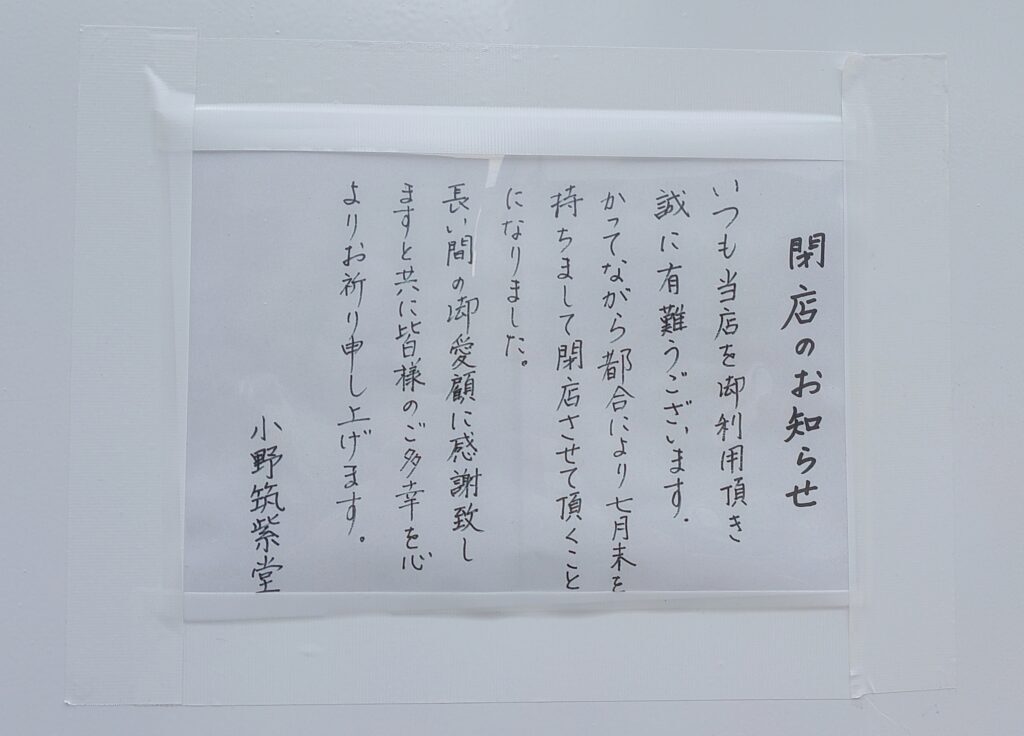 閉店のお知らせ
いつも当店を御利用頂き
誠に有難うございます.
かってながら都合により七月末を
持ちまして閉店させて頂くこと
になりました。
長い間の御愛顧に感謝致し
ますと共に皆様のご多幸を心
よりお祈り申し上げます。
小野筑紫堂